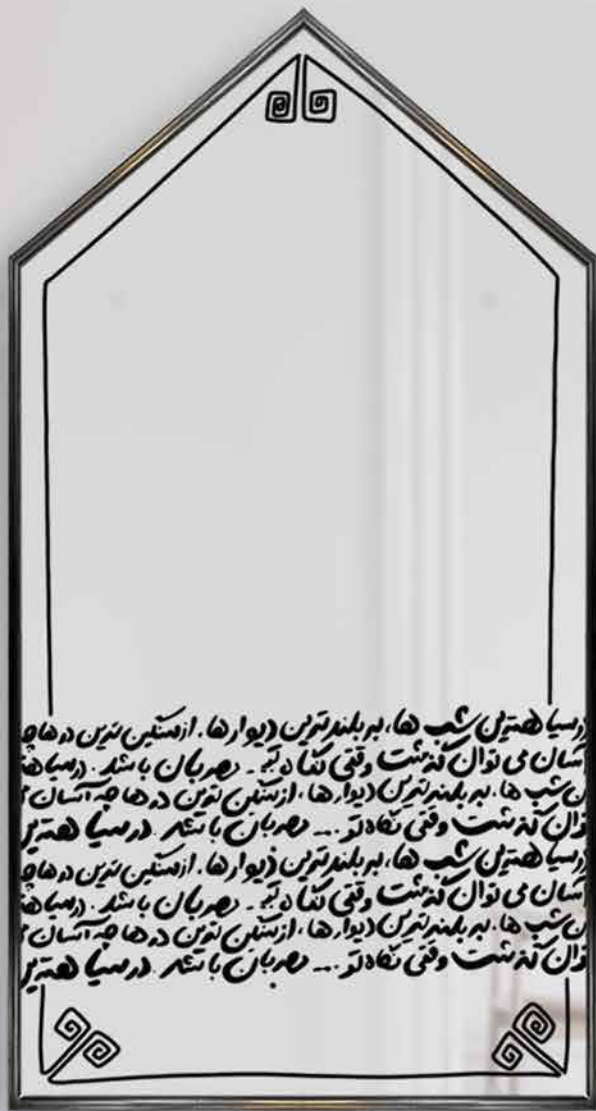 درسیاهترین شب ها، بر بلندترین دیوارها، از سنگین ترین درها چه
آسان می توان گذشت وقتی نگاه تو... مهربان باشد. درسیاهتر
ین شب ها، بر بلندترین دیوارها، از سنگین ترین درها چه آسان م
توان گذشت وقتی نگاه تو ... مهربان باشد. درسیاهترین
درسیاهترین شب ها، بر بلندترین دیوارها، از سنگین ترین درها چه
آسان می توان گذشت وقتی نگاه تو... مهربان باشد. درسیاهتر
ین شب ها، بر بلندترین دیوارها، از سنگین ترین درها چه آسان م
توان گذشت وقتی نگاه تو ... مهربان باشد. درسیاهترین